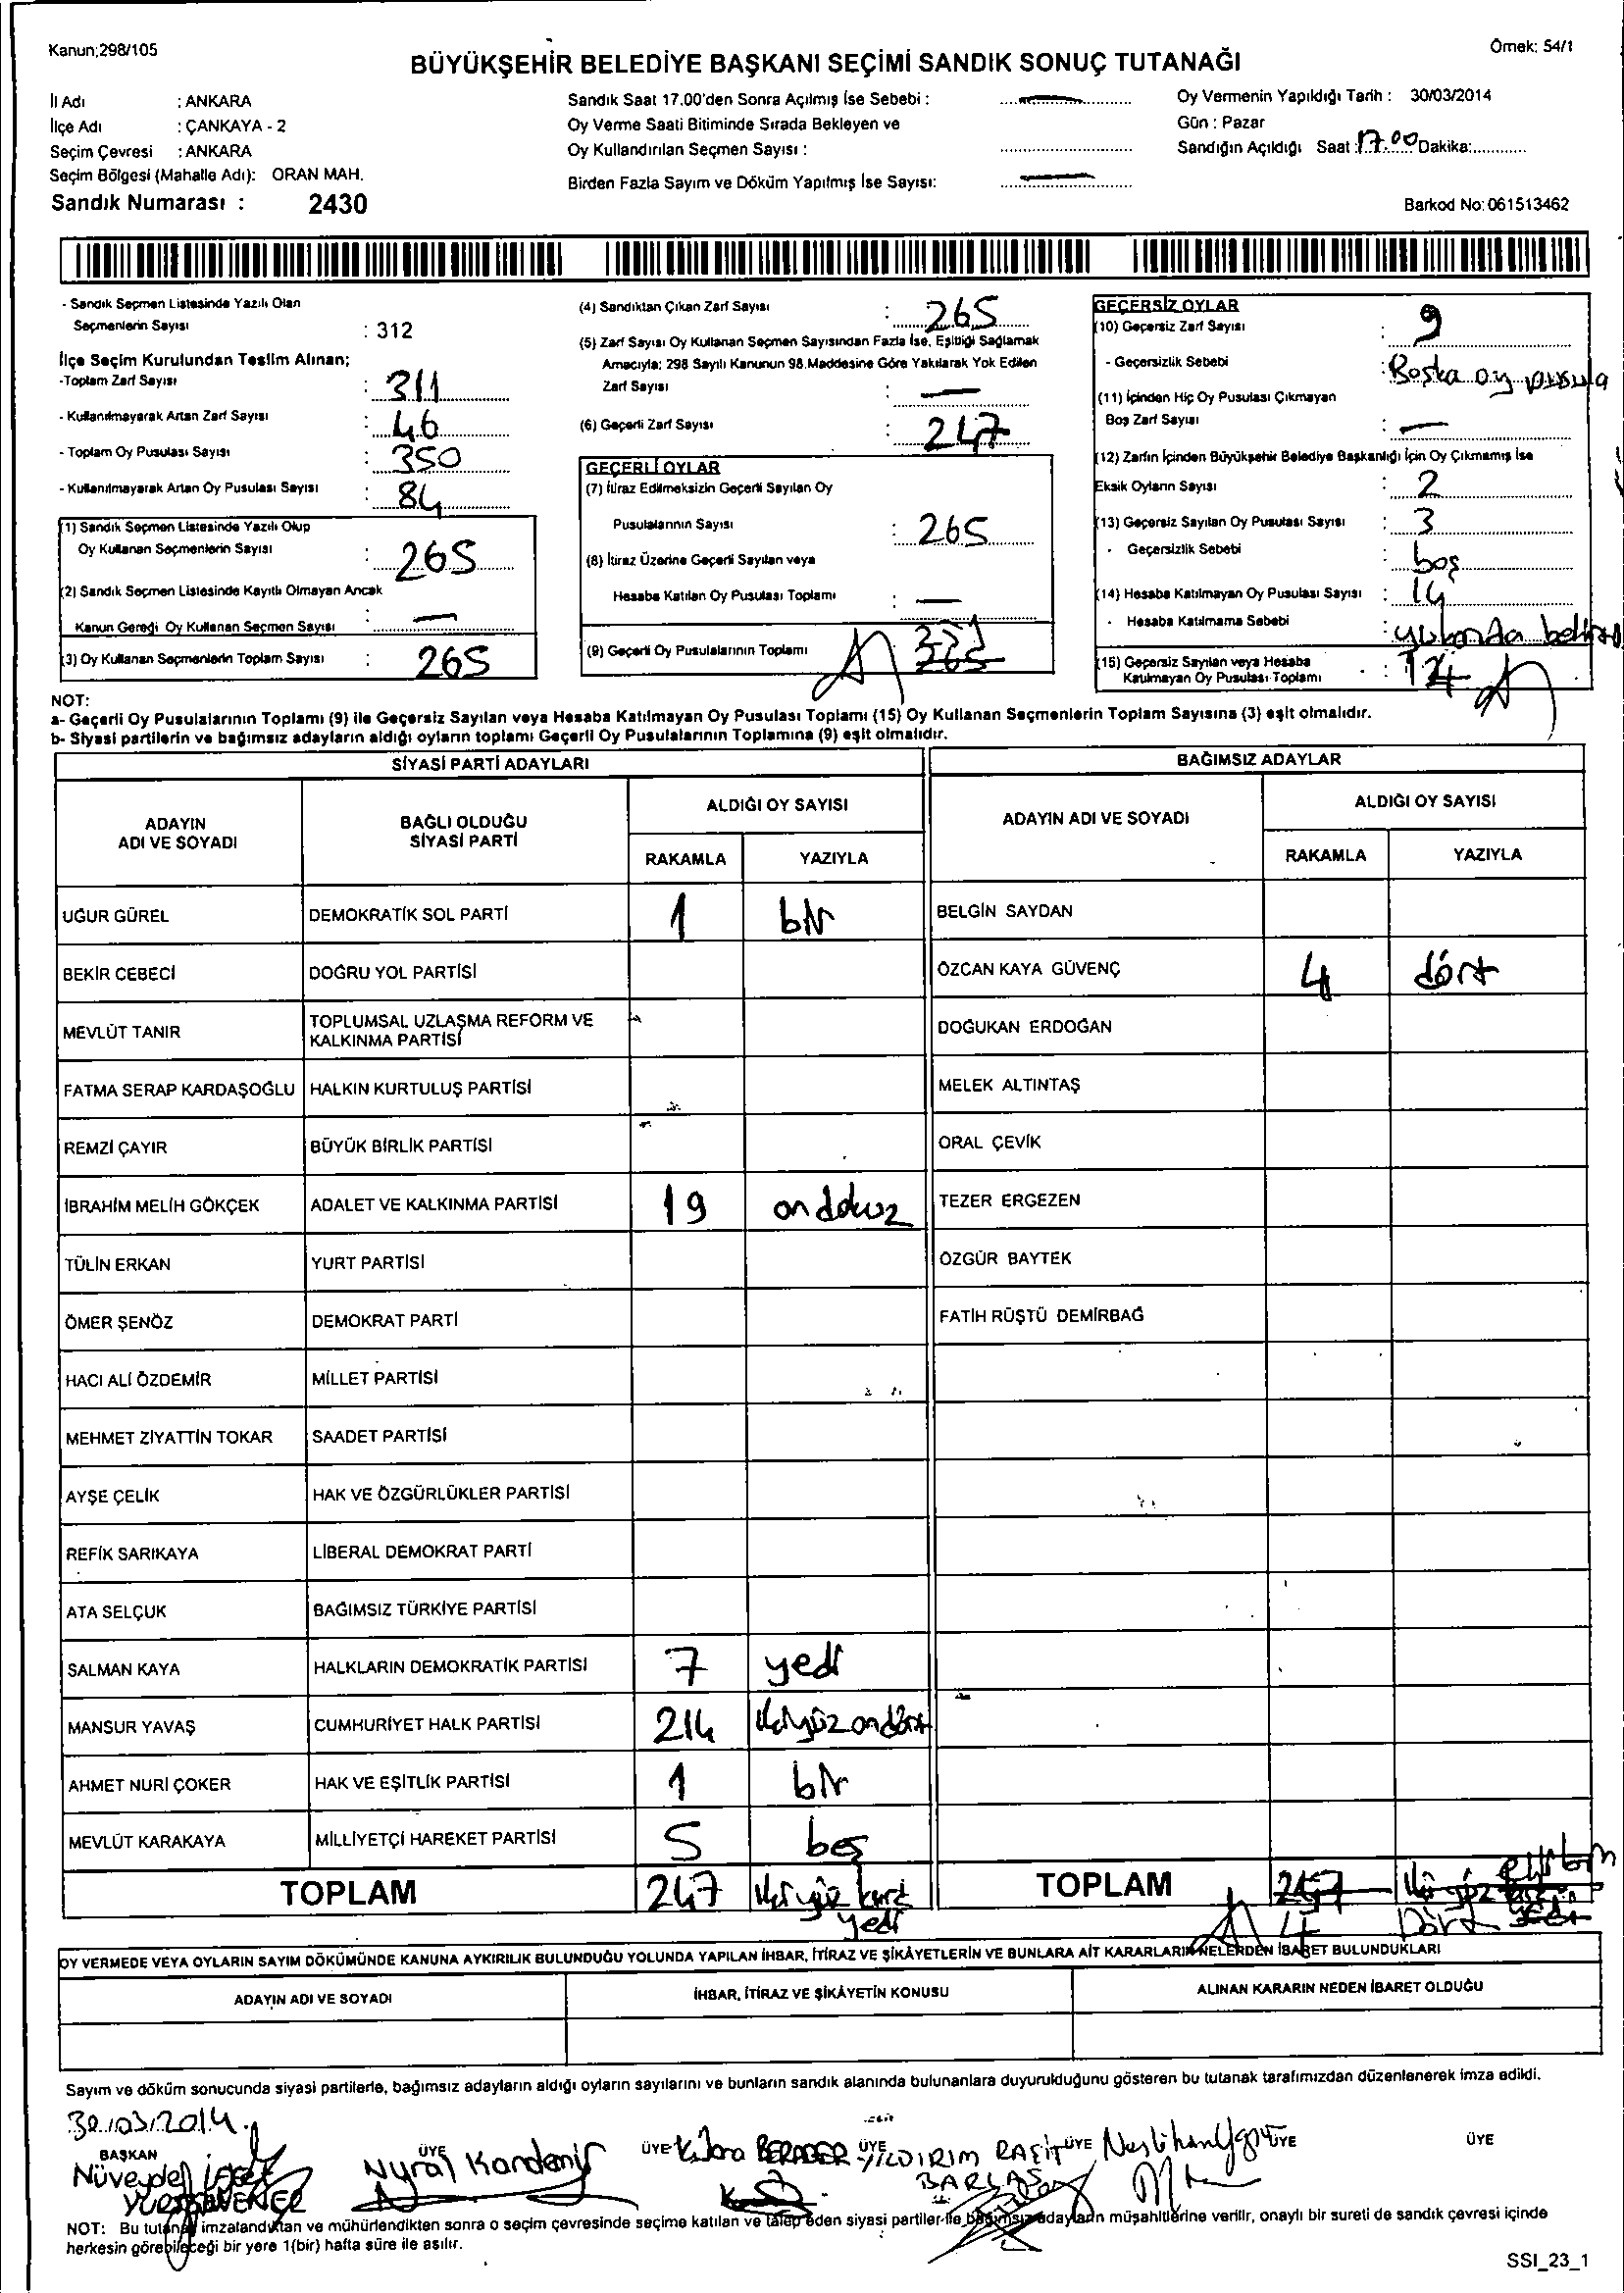 Kanun;298/105
Örnek: 54/1
BÜYÜKŞEHİR BELEDİYE BAŞKANI SEÇİMİ SANDIK SONUÇ TUTANAĞI
İl Adı : ANKARA
İlçe Adı : ÇANKAYA - 2
Seçim Çevresi : ANKARA
Seçim Bölgesi (Mahalle Adı): ORAN MAH.
Sandık Numarası : 2430
Sandık Saat 17.00'den Sonra Açılmış İse Sebebi :
Oy Verme Saati Bitiminde Sırada Bekleyen ve
Oy Kullandırılan Seçmen Sayısı :
Birden Fazla Sayım ve Döküm Yapılmış İse Sayısı:
Oy Vermenin Yapıldığı Tarih : 30/03/2014
Gün : Pazar
Sandığın Açıldığı Saat : 17.00 Dakika:
Barkod No: 061513462
- Sandık Seçmen Listesinde Yazılı Olan
Seçmenlerin Sayısı : 312
İlçe Seçim Kurulundan Teslim Alınan;
-Toplam Zarf Sayısı : 311
- Kullanılmayarak Artan Zarf Sayısı : 46
- Toplam Oy Pusulası Sayısı : 350
- Kullanılmayarak Artan Oy Pusulası Sayısı : 84
(1) Sandık Seçmen Listesinde Yazılı Olup
Oy Kullanan Seçmenlerin Sayısı : 265
(2) Sandık Seçmen Listesinde Kayıtlı Olmayan Ancak
Kanun Gereği Oy Kullanan Seçmen Sayısı : —
(3) Oy Kullanan Seçmenlerin Toplam Sayısı : 265
(4) Sandıktan Çıkan Zarf Sayısı : 265
(5) Zarf Sayısı Oy Kullanan Seçmen Sayısından Fazla İse, Eşitliği Sağlamak
Amacıyla; 298 Sayılı Kanunun 98.Maddesine Göre Yakılarak Yok Edilen
Zarf Sayısı : —
(6) Geçerli Zarf Sayısı : 247
GEÇERLİ OYLAR
(7) İtiraz Edilmeksizin Geçerli Sayılan Oy
Pusulalarının Sayısı : 265
(8) İtiraz Üzerine Geçerli Sayılan veya
Hesaba Katılan Oy Pusulası Toplamı : —
(9) Geçerli Oy Pusulalarının Toplamı
GEÇERSİZ OYLAR
(10) Geçersiz Zarf Sayısı : 9
- Geçersizlik Sebebi : Başka oy pusula
(11) İçinden Hiç Oy Pusulası Çıkmayan
Boş Zarf Sayısı : —
(12) Zarfın İçinden Büyükşehir Belediye Başkanlığı İçin Oy Çıkmamış İse
Eksik Oyların Sayısı : 2
(13) Geçersiz Sayılan Oy Pusulası Sayısı : 3
- Geçersizlik Sebebi : boş
(14) Hesaba Katılmayan Oy Pusulası Sayısı : 14
- Hesaba Katılmama Sebebi : yukarıda
(15) Geçersiz Sayılan veya Hesaba
Katılmayan Oy Pusulası Toplamı : 14
NOT:
a- Geçerli Oy Pusulalarının Toplamı (9) ile Geçersiz Sayılan veya Hesaba Katılmayan Oy Pusulası Toplamı (15) Oy Kullanan Seçmenlerin Toplam Sayısına (3) eşit olmalıdır.
b- Siyasi partilerin ve bağımsız adayların aldığı oyların toplamı Geçerli Oy Pusulalarının Toplamına (9) eşit olmalıdır.
SİYASİ PARTİ ADAYLARI
ADAYIN ADI VE SOYADI BAĞLI OLDUĞU SİYASİ PARTİ ALDIĞI OY SAYISI
RAKAMLA YAZIYLA
UĞUR GÜREL DEMOKRATİK SOL PARTİ 1 bir
BEKİR CEBECİ DOĞRU YOL PARTİSİ
MEVLÜT TANIR TOPLUMSAL UZLAŞMA REFORM VE KALKINMA PARTİSİ
FATMA SERAP KARDAŞOĞLU HALKIN KURTULUŞ PARTİSİ
REMZİ ÇAYIR BÜYÜK BİRLİK PARTİSİ
İBRAHİM MELİH GÖKÇEK ADALET VE KALKINMA PARTİSİ 19 ondokuz
TÜLİN ERKAN YURT PARTİSİ
ÖMER ŞENÖZ DEMOKRAT PARTİ
HACI ALİ ÖZDEMİR MİLLET PARTİSİ
MEHMET ZİYATTİN TOKAR SAADET PARTİSİ
AYŞE ÇELİK HAK VE ÖZGÜRLÜKLER PARTİSİ
REFİK SARIKAYA LİBERAL DEMOKRAT PARTİ
ATA SELÇUK BAĞIMSIZ TÜRKİYE PARTİSİ
SALMAN KAYA HALKLARIN DEMOKRATİK PARTİSİ 7 yedi
MANSUR YAVAŞ CUMHURİYET HALK PARTİSİ 214 ikiyüzondört
AHMET NURİ ÇOKER HAK VE EŞİTLİK PARTİSİ 1 bir
MEVLÜT KARAKAYA MİLLİYETÇİ HAREKET PARTİSİ 5 beş
TOPLAM 247 ikiyüz kırk yedi
BAĞIMSIZ ADAYLAR
ADAYIN ADI VE SOYADI ALDIĞI OY SAYISI
RAKAMLA YAZIYLA
BELGİN SAYDAN
ÖZCAN KAYA GÜVENÇ 4 dört
DOĞUKAN ERDOĞAN
MELEK ALTINTAŞ
ORAL ÇEVİK
TEZER ERGEZEN
ÖZGÜR BAYTEK
FATİH RÜŞTÜ DEMİRBAĞ
TOPLAM 4 Dört
OY VERMEDE VEYA OYLARIN SAYIM DÖKÜMÜNDE KANUNA AYKIRILIK BULUNDUĞU YOLUNDA YAPILAN İHBAR, İTİRAZ VE ŞİKÂYETLERİN VE BUNLARA AİT KARARLARIN NELERDEN İBARET BULUNDUKLARI
ADAYIN ADI VE SOYADI İHBAR, İTİRAZ VE ŞİKÂYETİN KONUSU ALINAN KARARIN NEDEN İBARET OLDUĞU
Sayım ve döküm sonucunda siyasi partilerle, bağımsız adayların aldığı oyların sayılarını ve bunların sandık alanında bulunanlara duyurulduğunu gösteren bu tutanak tarafımızdan düzenlenerek imza edildi.
30/03/2014
BAŞKAN ÜYE ÜYE ÜYE ÜYE ÜYE ÜYE
Nuray YILDIRIM RAŞİT
BARLAS
NOT: Bu tutanak imzalandıktan ve mühürlendikten sonra o seçim çevresinde seçime katılan ve talep eden siyasi partiler ile bağımsız adayların müşahitlerine verilir, onaylı bir sureti de sandık çevresi içinde
herkesin görebileceği bir yere 1(bir) hafta süre ile asılır.
SSI_23_1